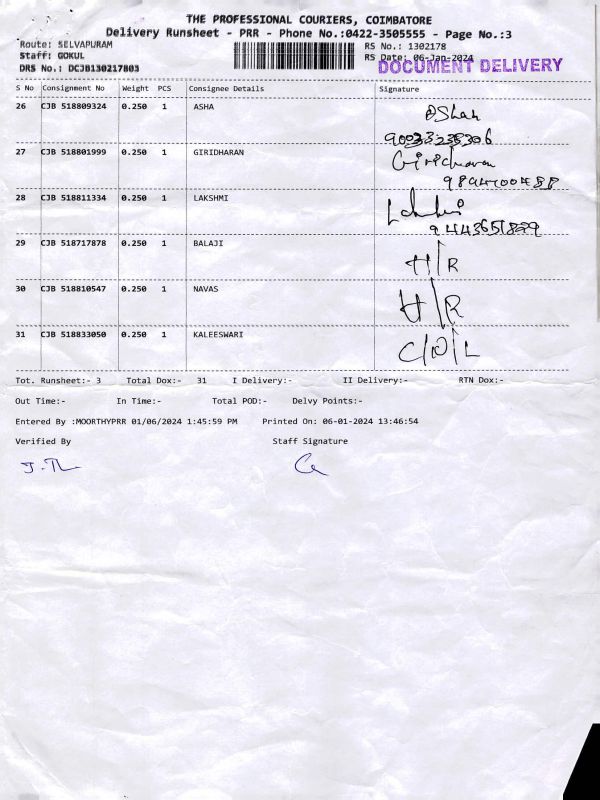 THE PROFESSIONAL COURIERS, COIMBATORE
Delivery Runsheet - PRR - Phone No.:0422-3505555 - Page No.:3
Route: SELVAPURAM
RS No.: 1302178
Staff: GOKUL
RS Date: 06-Jan-2024
DRS No.: DCJB130217803
DOCUMENT DELIVERY
S No Consignment No Weight PCS Consignee Details Signature
26 CJB 518809324 0.250 1 ASHA
27 CJB 518801999 0.250 1 GIRIDHARAN
Giridharan
28 CJB 518811334 0.250 1 LAKSHMI
29 CJB 518717878 0.250 1 BALAJI
H/R
30 CJB 518810547 0.250 1 NAVAS
H/R
31 CJB 518833050 0.250 1 KALEESWARI
Tot. Runsheet:- 3 Total Dox:- 31 I Delivery:- II Delivery:- RTN Dox:-
Out Time:- In Time:- Total POD:- Delvy Points:-
Entered By :MOORTHYPRR 01/06/2024 1:45:59 PM Printed On: 06-01-2024 13:46:54
Verified By Staff Signature